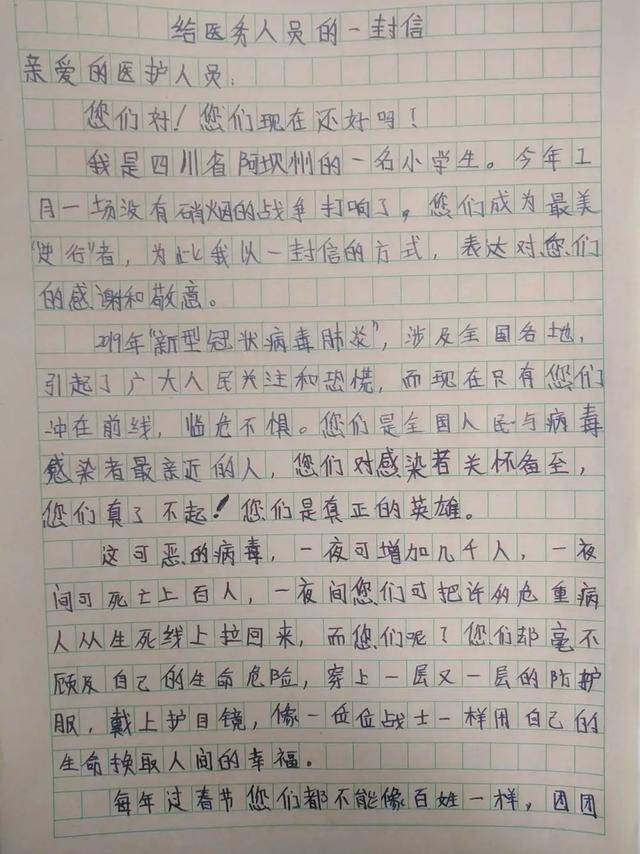 给医务人员的一封信
亲爱的医护人员：
您们好！您们现在还好吗！
我是四川省阿坝州的一名小学生。今年1
月一场没有硝烟的战争打响了，您们成为最美
“逆行”者，为此我以一封信的方式，表达对您们
的感谢和敬意。
2019年“新型冠状病毒肺炎”，涉及全国各地，
引起了广大人民关注和恐慌，而现在只有您们
冲在前线，临危不惧。您们是全国人民与病毒
感染者最亲近的人，您们对感染者关怀备至，
您们真了不起！您们是真正的英雄。
这可恶的病毒，一夜可增加几千人，一夜
间可死亡上百人，一夜间您们可把许多危重病
人从生死线上拉回来，而您们呢？您们却毫不
顾及自己的生命危险，穿上一层又一层的防护
服，戴上护目镜，像一位位战士一样用自己的
生命换取人间的幸福。
每年过春节您们都不能像百姓一样，团团